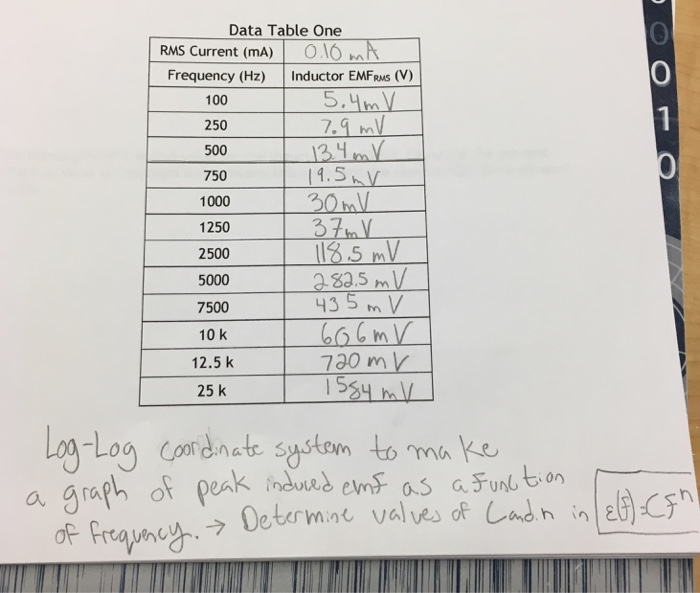 Data Table One
RMS Current (mA) 0.10 mA
Frequency (Hz) Inductor EMFRMS (V)
100 5.4mV
250 7.9 mV
500 13.4mV
750 19.5mV
1000 30mV
1250 37mV
2500 118.5 mV
5000 282.5 mV
7500 435 mV
10 k 606mV
12.5 k 720 mV
25 k 1584 mV
Log-Log Coordinate system to make
a graph of peak induced emf as a function
of frequency. → Determine values of C and n in ε(f)=Cfⁿ
0
0
1
0